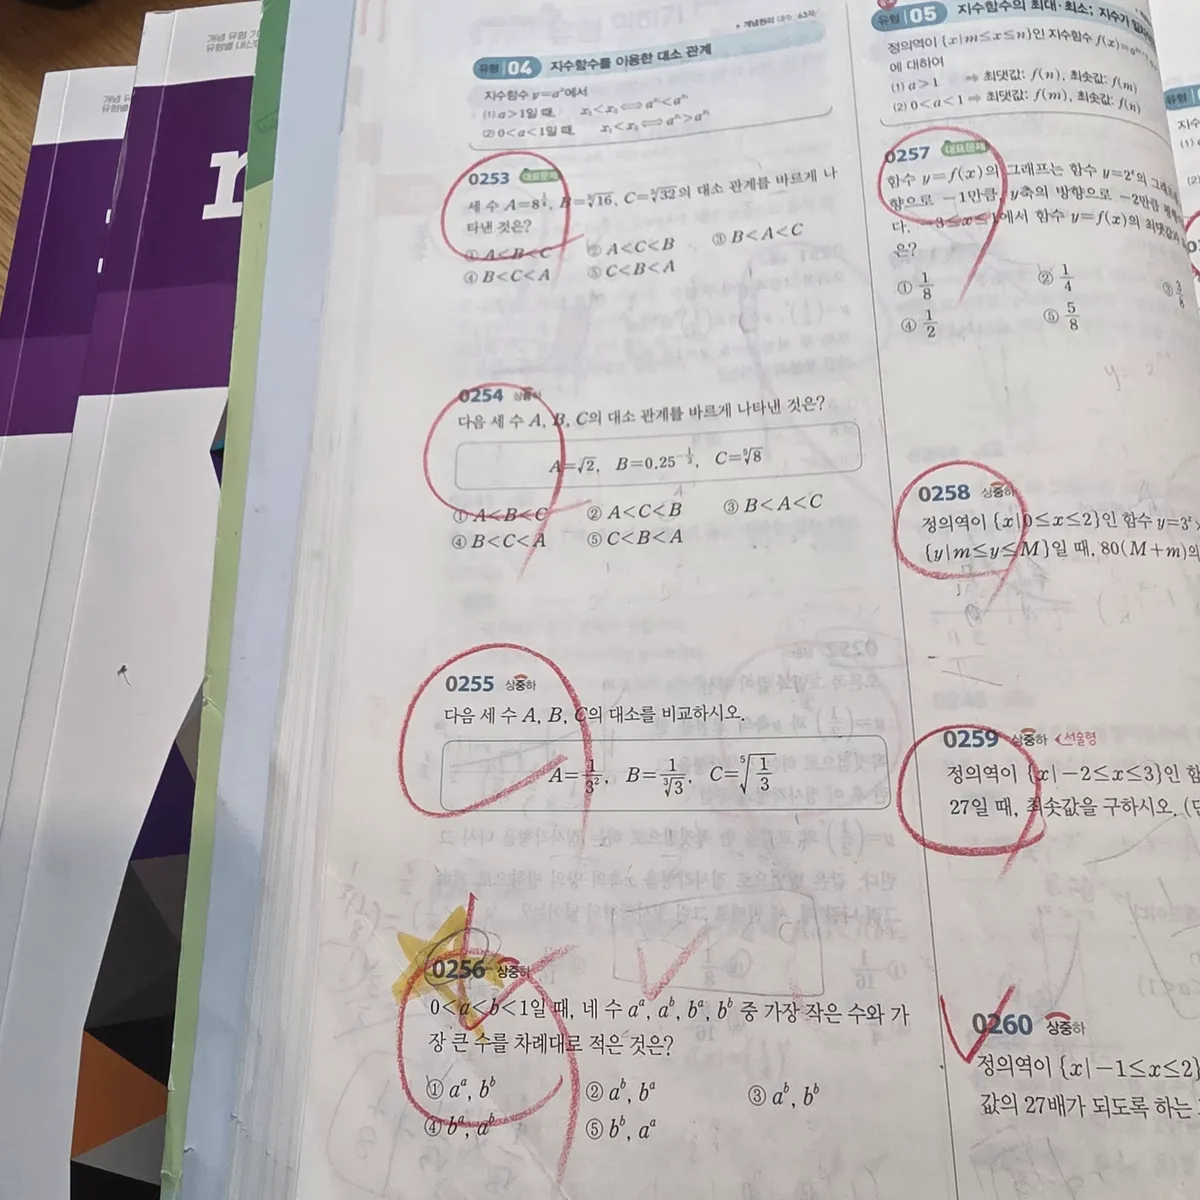 개념 유형
유형별 내신
유형 04 지수함수를 이용한 대소 관계
지수함수 y=aˣ에서
(1) a>1일 때, x₁<x₂ ⟺ aˣ¹<aˣ²
(2) 0<a<1일 때, x₁<x₂ ⟺ aˣ¹>aˣ²
0253 대표문제
세 수 B=∛16, C=⁵√32의 대소 관계를 바르게 나
타낸 것은?
① A<B<C ② A<C<B ③ B<A<C
④ B<C<A ⑤ C<B<A
0254 상중하
다음 세 수 A, B, C의 대소 관계를 바르게 나타낸 것은?
A=√2, B=0.25^(-1/3), C=⁵√8
① A<B<C ② A<C<B ③ B<A<C
④ B<C<A ⑤ C<B<A
0255 상중하
다음 세 수 A, B, C의 대소를 비교하시오.
A=1/3², B=1/∛3, C=⁵√(1/3)
0256 상중하
0<a<b<1일 때, 네 수 aᵃ, aᵇ, bᵃ, bᵇ 중 가장 작은 수와 가
장 큰 수를 차례대로 적은 것은?
① aᵃ, bᵇ ② aᵇ, bᵃ ③ aᵇ, bᵇ
④ bᵃ, aᵇ ⑤ bᵇ, aᵃ
유형 05 지수함수의 최대·최소;
정의역이 {x|m≤x≤n}인 지수함수
에 대하여
(1) a>1 ⇒ 최댓값: f(n), 최솟값: f(m)
(2) 0<a<1 ⇒ 최댓값: f(m), 최솟값: f(n)
0257 대표문제
함수 y=f(x)의 그래프는 함수 y=2ˣ의
향으로 −1만큼, y축의 방향으로 −2만큼
다. −3≤x≤1에서 함수 y=f(x)의 최댓값과
은?
① 1/8 ② 1/4 ③ 3/8
④ 1/2 ⑤ 5/8
0258 상중하
정의역이 {x|0≤x≤2}인 함수 y=3ˣ
{y|m≤y≤M}일 때, 80(M+m)의
0259 상중하 서술형
정의역이 {x|−2≤x≤3}인 함
27일 때, 최솟값을 구하시오.
0260 상중하
정의역이 {x|−1≤x≤2}
값의 27배가 되도록 하는